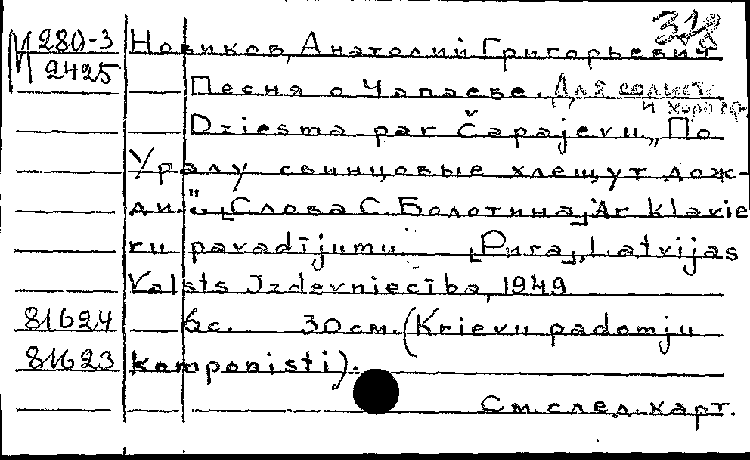 318
М 280-3
2425
Новиков, Анатолий Григорьевич
Песня о Чапаеве. Для солиста
и хора
Dziesma par Čapajevu „По
Уралу свинцовые хлещут дож-
ди..." [Слова С. Болотина] Ar klavie
ru pavadījumu [Рига], Latvijas
Valsts Izdevniecība, 1949
81624 6с. 30см. (Krievu padomju
81623 komponisti).
См. след. карт.